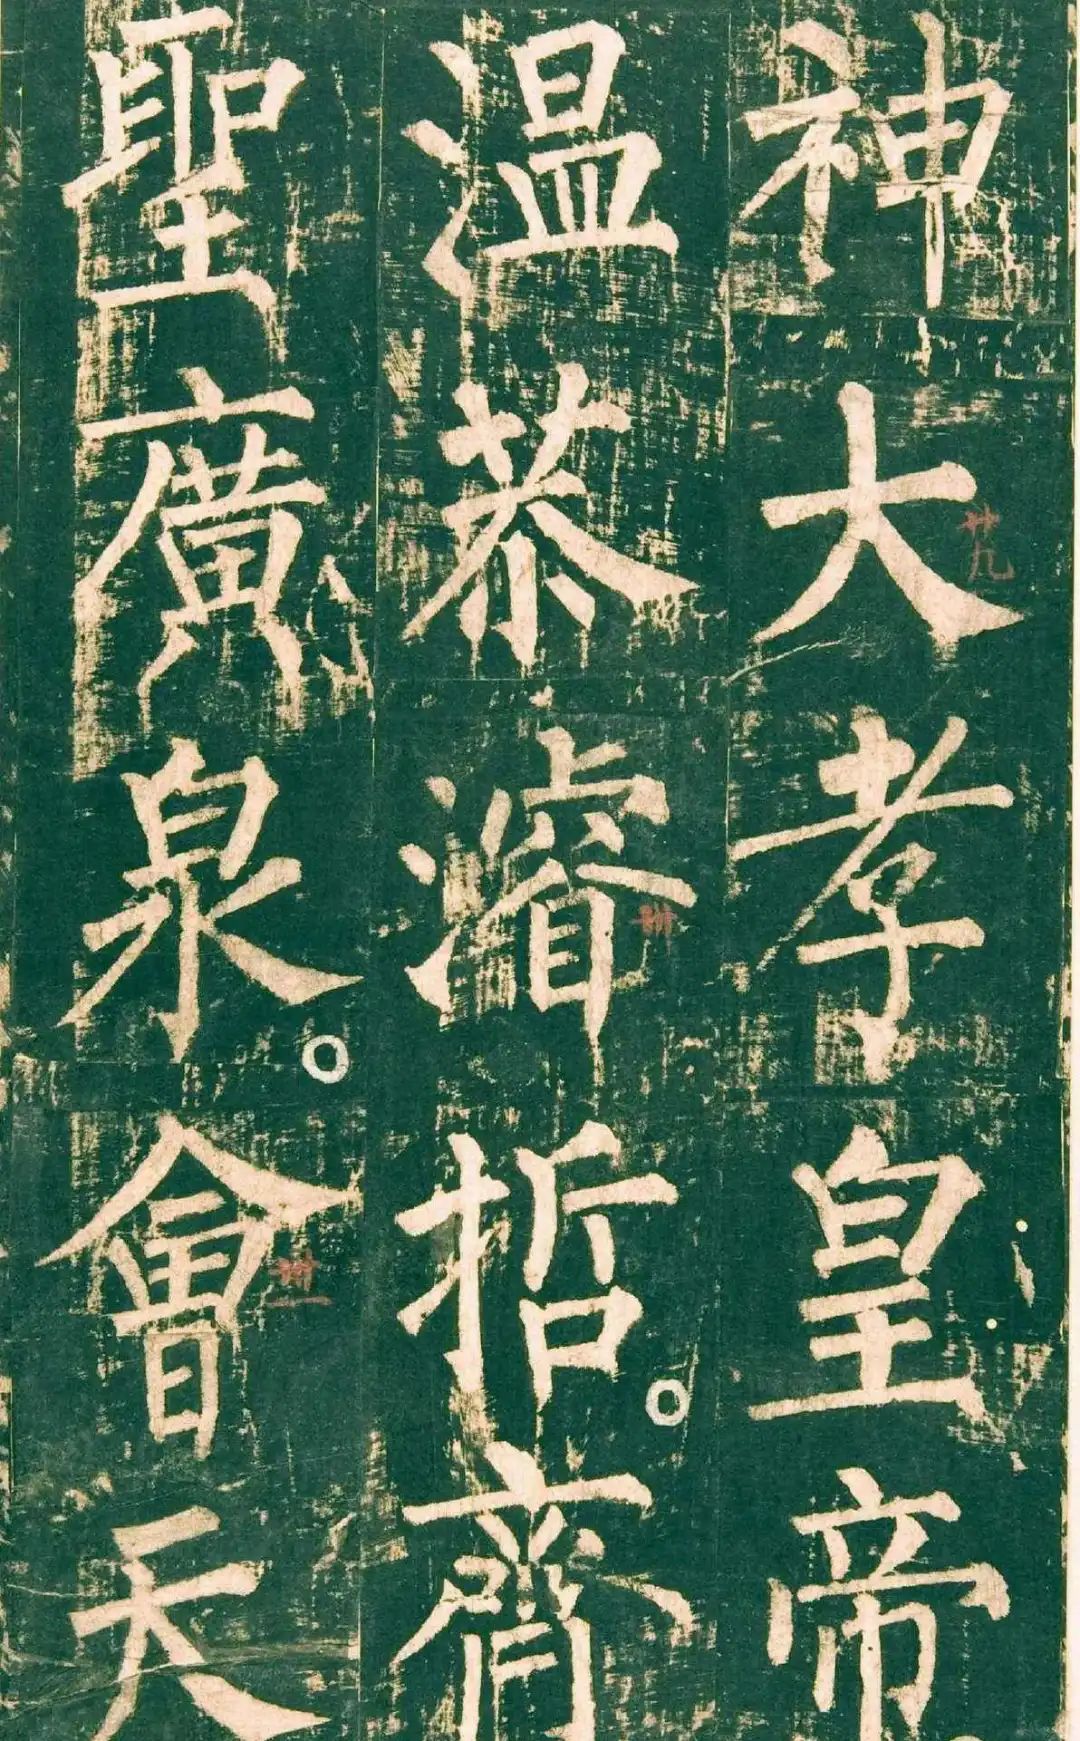 神大孝皇帝
温恭濬哲齊
聖廣泉會天
廿九
卅
卅一